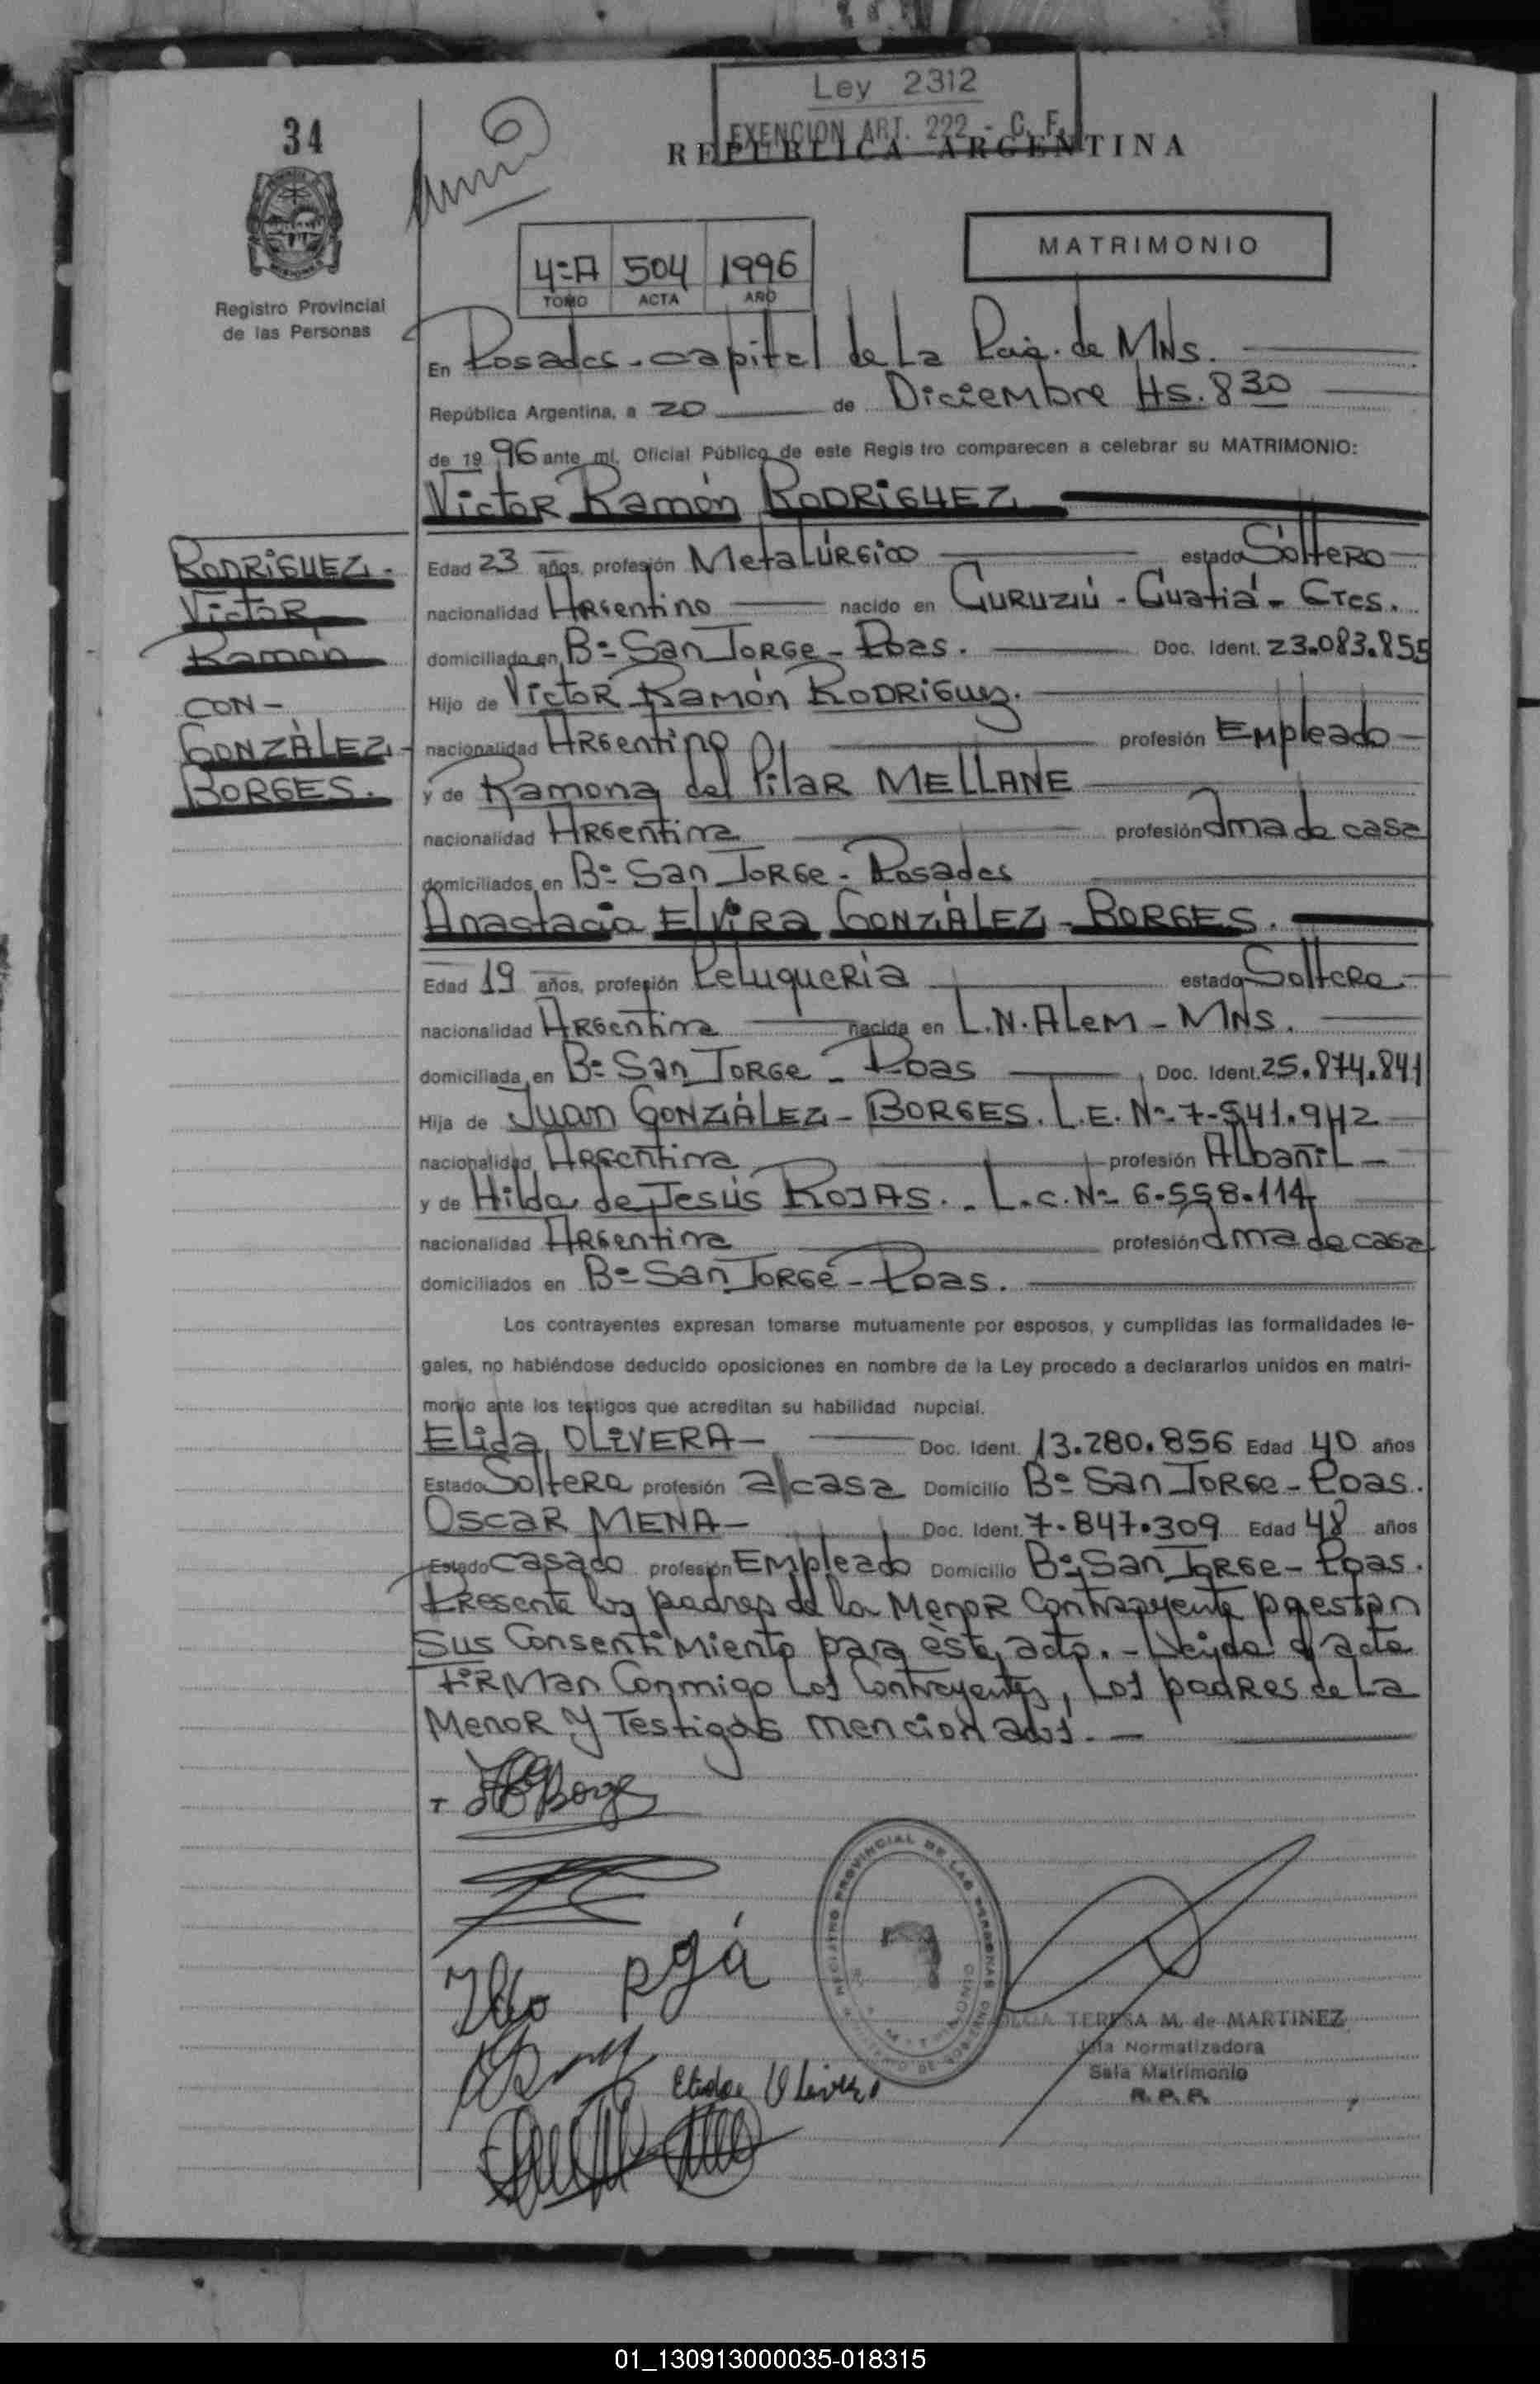 Ley 2312
EXENCION ART. 222 - C. F.
34
REPUBLICA ARGENTINA
MATRIMONIO
4ºA 504 1996
TOMO ACTA AÑO
Registro Provincial
de las Personas
En Posadas - capital de La Pcia. de MNs.
República Argentina, a 20 de Diciembre Hs. 8 30
de 19 96 ante mí, Oficial Público de este Registro comparecen a celebrar su MATRIMONIO:
Victor Ramón RODRIGUEZ
RODRIGUEZ -
Victor
Ramón
CON -
GONZÁLEZ -
BORGES.
Edad 23 años, profesión Metalúrgico estado Soltero
nacionalidad Argentino nacido en Curuziú - Cuatiá - Ctes.
domiciliado en Bº San Jorge - Pdas. Doc. Ident. 23.083.855
Hijo de Victor Ramón RODRIGUEZ.
nacionalidad Argentino profesión Empleado
y de Ramona del Pilar MELLANE
nacionalidad Argentina profesión Ama de casa
domiciliados en Bº San Jorge - Posadas
Anastacia Elvira GONZÁLEZ - BORGES.
Edad 19 años, profesión Peluqueria estado Soltera
nacionalidad Argentina nacida en L.N. Alem - MNs.
domiciliada en Bº San Jorge - Pdas Doc. Ident. 25.874.841
Hija de Juan GONZÁLEZ - BORGES. L.E. Nº 7-541.942
nacionalidad Argentina profesión Albañil -
y de Hilda de Jesús ROJAS. - L.C. Nº 6.558.114
nacionalidad Argentina profesión Ama de casa
domiciliados en Bº San Jorge - Pdas.
Los contrayentes expresan tomarse mutuamente por esposos, y cumplidas las formalidades le-
gales, no habiéndose deducido oposiciones en nombre de la Ley procedo a declararlos unidos en matri-
monio ante los testigos que acreditan su habilidad nupcial.
Elida OLIVERA - Doc. Ident. 13.280.856 Edad 40 años
Estado Soltera profesión a/casa Domicilio Bº San Jorge - Pdas.
Oscar MENA - Doc. Ident. 7.847.309 Edad 48 años
Estado Casado profesión Empleado Domicilio Bº San Jorge - Pdas.
Presente los padres de la Menor Contrayente prestan
Sus Consentimiento para éste acto. - Leída el acta
Firman Conmigo Los Contrayentes, Los padres de La
Menor y Testigos mencionados. -
Elida Olivera
REGISTRO PROVINCIAL DE LAS PERSONAS
TERESA M. de MARTINEZ
Jefa Normalizadora
Sala Matrimonio
R. P. P.
01_130913000035-018315